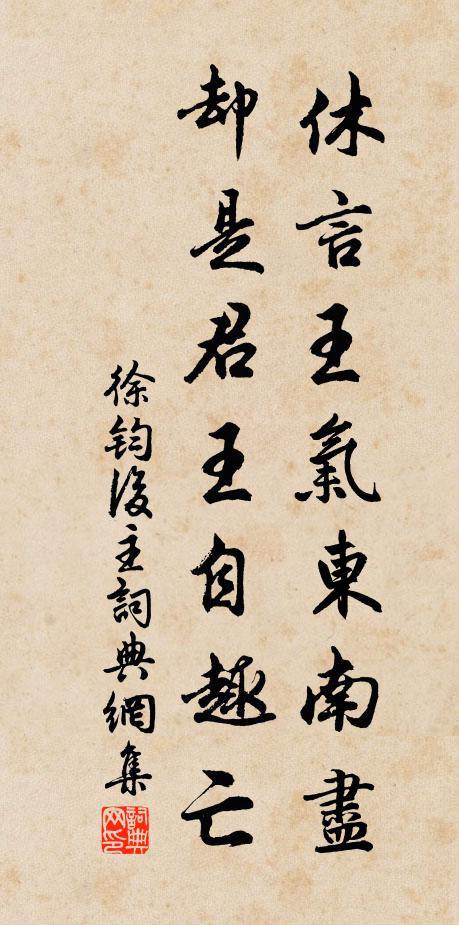 休言王氣東南盡
却是君王自趣亡
徐鈞後主詞典網集
詞典网印